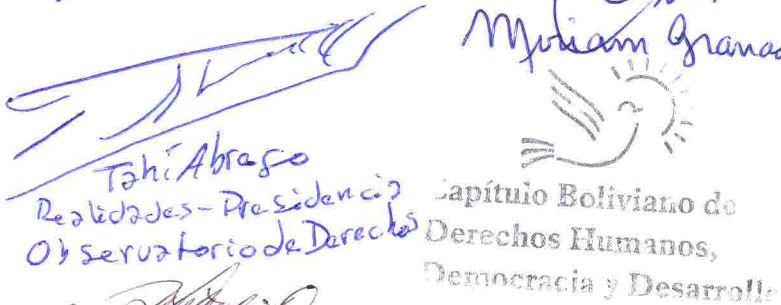 Miriam Granad
Tahí Abrego
Realidades - Presidencia
Observatorio de Derechos
Capítulo Boliviano de
Derechos Humanos,
Democracia y Desarrollo